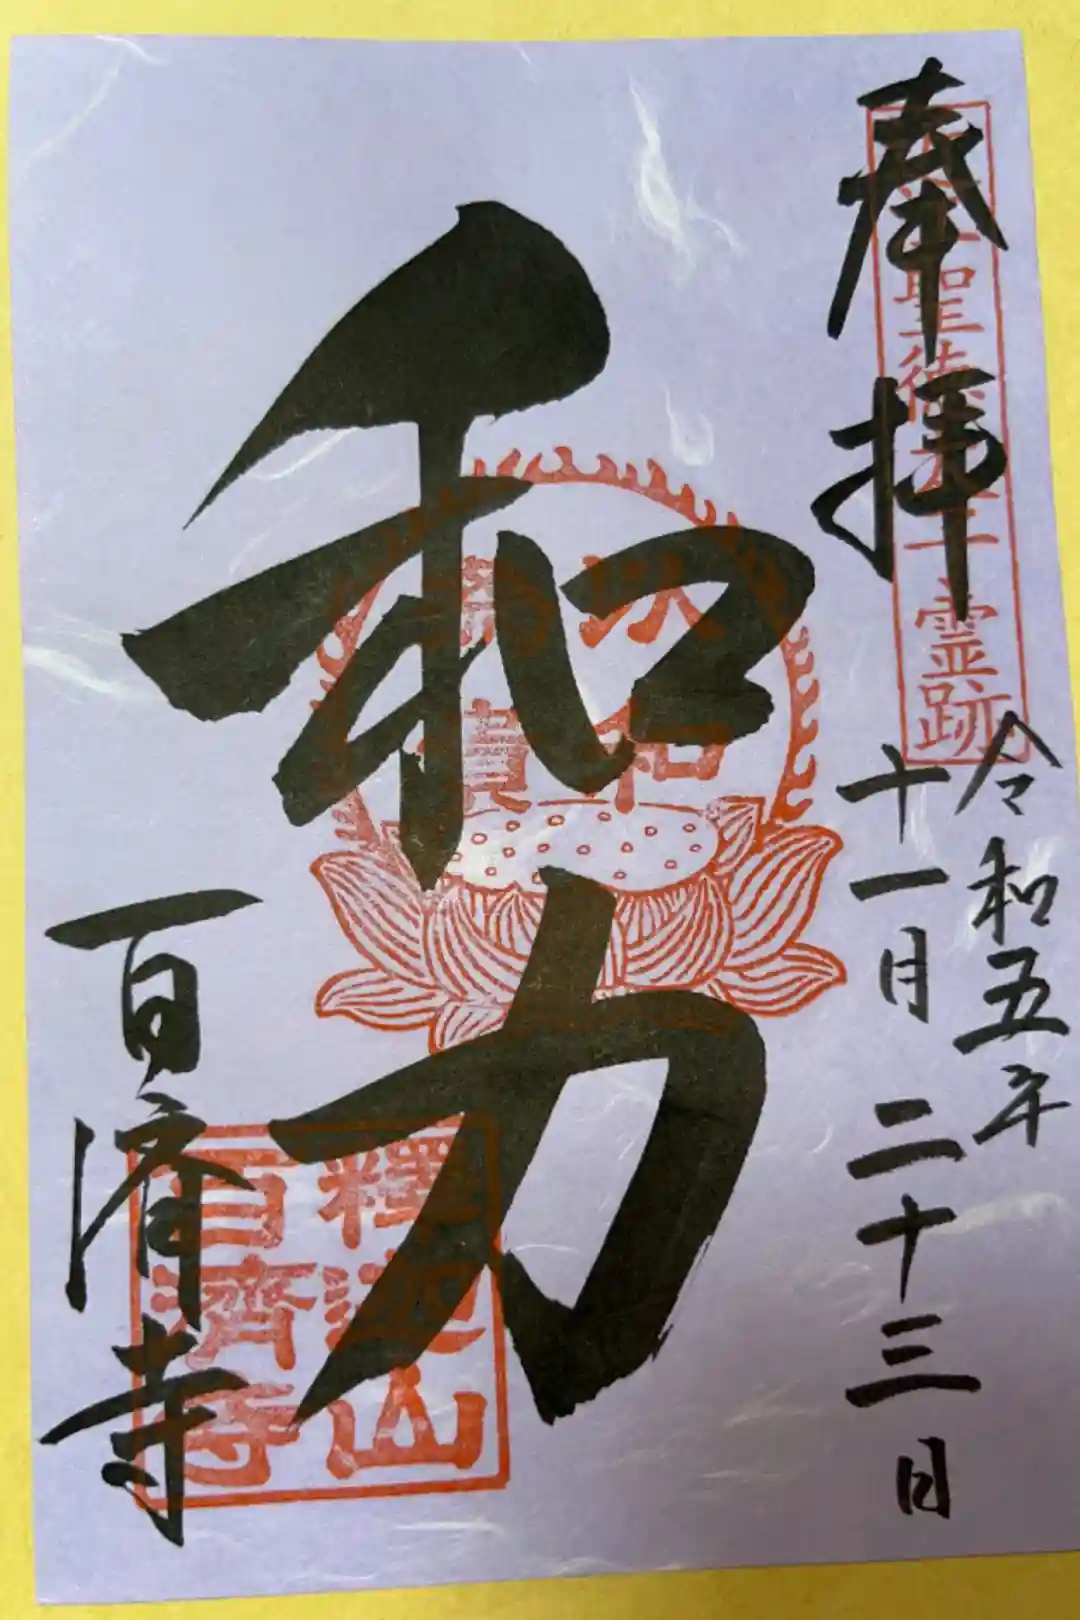 奉拝
聖徳太子霊跡
令和五年
十一月二十三日
和力
以和
為貴
百済寺
釋迦山
百濟寺